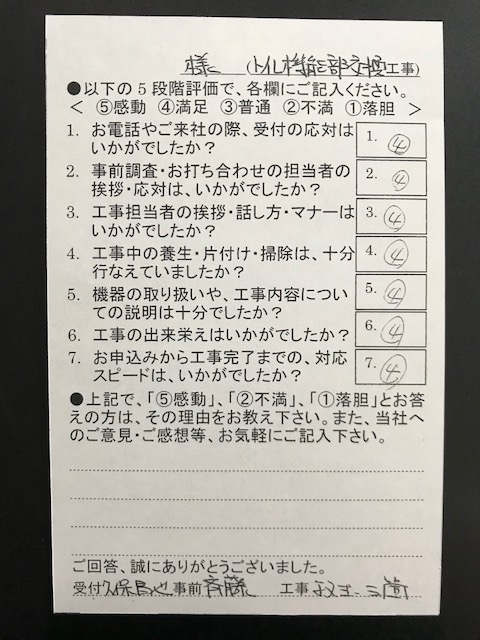 様 (トイレ機能部交換工事)
●以下の5段階評価で、各欄にご記入ください。
< ⑤感動 ④満足 ③普通 ②不満 ①落胆 >
1. お電話やご来社の際、受付の応対は
いかがでしたか?
1. ④
2. 事前調査・お打ち合わせの担当者の
挨拶・応対は、いかがでしたか?
2. ④
3. 工事担当者の挨拶・話し方・マナーは
いかがでしたか?
3. ④
4. 工事中の養生・片付け・掃除は、十分
行なえていましたか?
4. ④
5. 機器の取り扱いや、工事内容につい
ての説明は十分でしたか?
5. ④
6. 工事の出来栄えはいかがでしたか?
6. ④
7. お申込みから工事完了までの、対応
スピードは、いかがでしたか?
7. ④
●上記で、「⑤感動」、「②不満」、「①落胆」とお答
えの方は、その理由をお教え下さい。また、当社へ
のご意見・ご感想等、お気軽にご記入下さい。
ご回答、誠にありがとうございました。
受付 久保島 事前 斉藤 工事